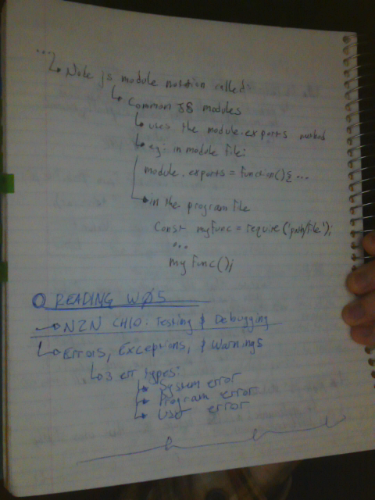 ...
↳ Node js module notation called:
↳ Common JS modules
↳ uses the module.exports method
↳ e.g. in module file:
module.exports = function(){ ...
in the program file
const myfunc = require('path/file');
...
myfunc();
O READING W05
→ N2N CH10: Testing & Debugging
↳ Errors, Exceptions, & Warnings
↳ 3 err types:
↳ System error
↳ Program error
↳ User error